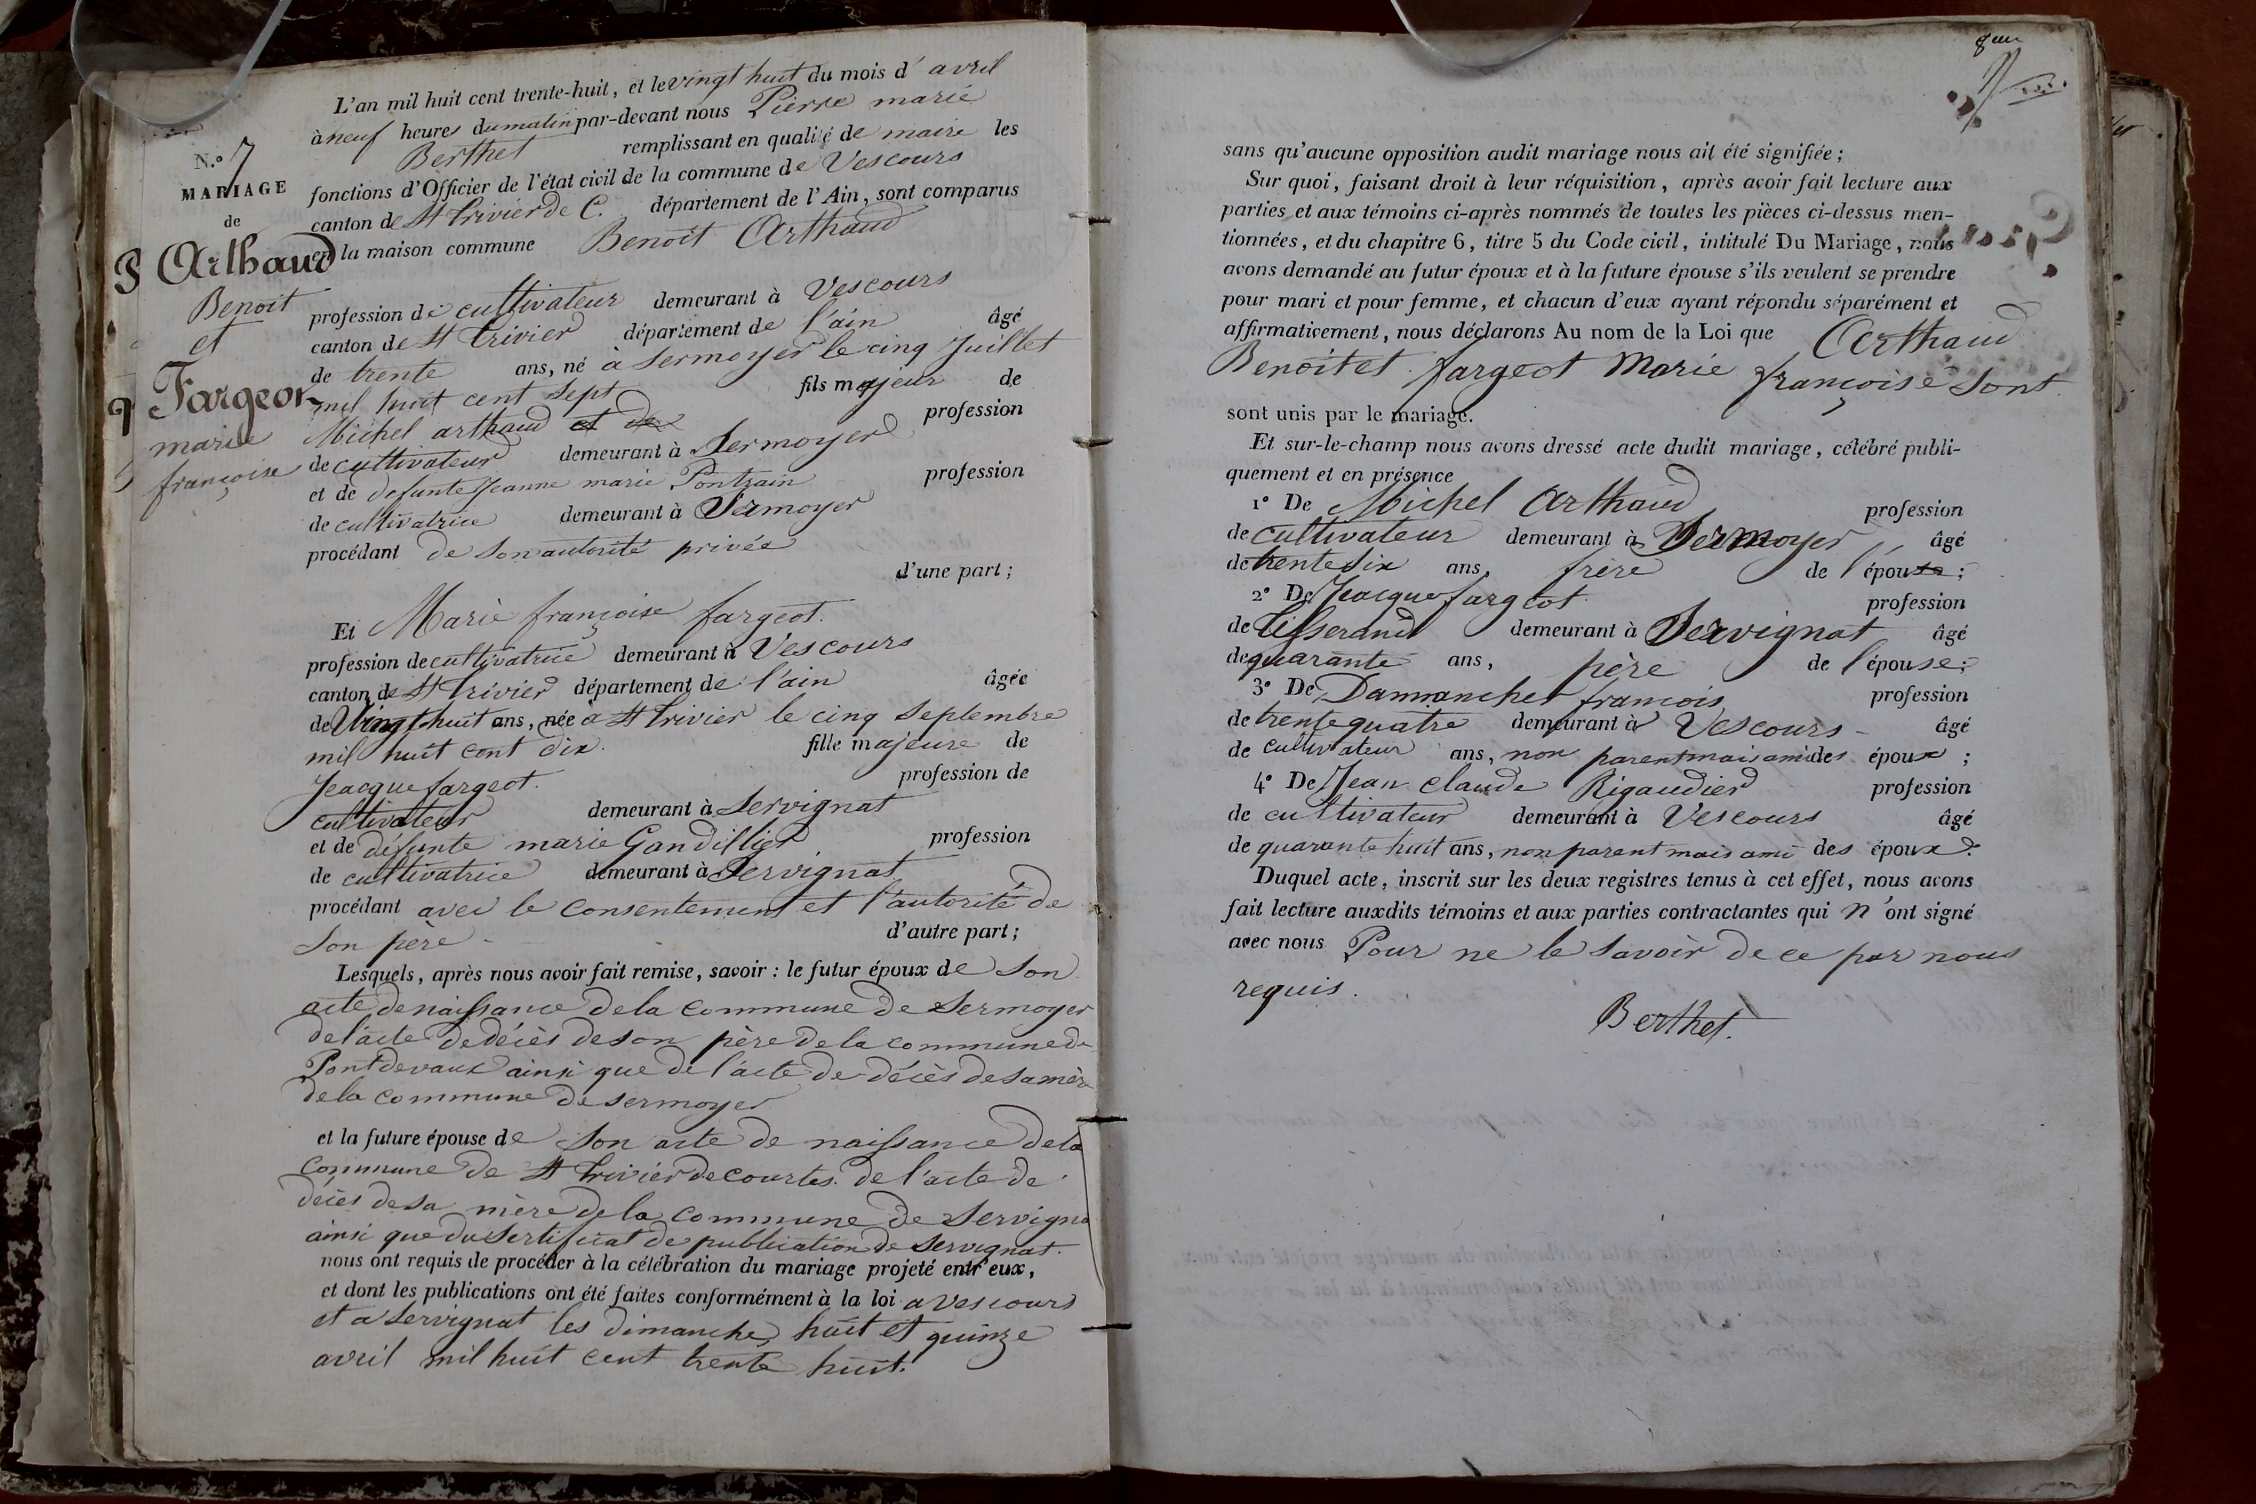 L'an mil huit cent trente-huit, et le vingt huit du mois d'avril
à neuf heures du matin par-devant nous Pierre marie
Berthet remplissant en qualité de maire les
fonctions d'Officier de l'état civil de la commune de Vescours
canton de St Trivier de C. département de l'Ain, sont comparus
en la maison commune Benoit Arthaud
N.º 7
MARIAGE
de
Arthaud
Benoit
et
Fargeot
marie
françoise
profession de cultivateur demeurant à Vescours
canton de St Trivier département de l'ain âgé
de trente ans, né à Sermoyer le cinq Juillet
mil huit cent sept fils majeur de
Michel arthaud et de profession
de cultivateur demeurant à Sermoyer
et de defunte Jeanne marie Pontrain profession
de cultivatrice demeurant à Sermoyer
procédant de son autorité privée
d'une part;
Et Marie françoise fargeot.
profession de cultivatrice demeurant à Vescours
canton de St Trivier département de l'ain âgée
de Vingt huit ans, née à St Trivier le cinq Septembre
mil huit cent dix. fille majeure de
Jeacque fargeot. profession de
cultivateur demeurant à Servignat
et de défunte marie Gandillier profession
de cultivatrice demeurant à Servignat
procédant avec le consentement et l'autorité de
son père - d'autre part;
Lesquels, après nous avoir fait remise, savoir: le futur époux de son
acte de naissance de la commune de Sermoyer
de l'acte de décès de son père de la commune de
Pontdevaux ainsi que de l'acte de décès de sa mère
de la commune de sermoyer
et la future épouse de son acte de naissance de la
commune de St Trivier de courtes. de l'acte de
décès de sa mère de la commune de Servigna
ainsi que du sertificat de publication de servignat.
nous ont requis de procéder à la célébration du mariage projeté entr'eux,
et dont les publications ont été faites conformément à la loi a Vescours
et a Servignat les dimanche huit et quinze
avril mil huit cent trente huit.
sans qu'aucune opposition audit mariage nous ait été signifiée;
Sur quoi, faisant droit à leur réquisition, après avoir fait lecture aux
parties et aux témoins ci-après nommés de toutes les pièces ci-dessus men-
tionnées, et du chapitre 6, titre 5 du Code civil, intitulé Du Mariage, nous
avons demandé au futur époux et à la future épouse s'ils veulent se prendre
pour mari et pour femme, et chacun d'eux ayant répondu séparément et
affirmativement, nous déclarons Au nom de la Loi que Arthaud
Benoit et fargeot Marie françoise sont
sont unis par le mariage.
Et sur-le-champ nous avons dressé acte dudit mariage, célébré publi-
quement et en présence
1º De Michel Arthaud profession
de cultivateur demeurant à Sermoyer âgé
de trente six ans, frère de l'épouse;
2º De Jeacque fargeot profession
de tisserand demeurant à Servignat âgé
de quarante ans, père de l'épouse;
3º De Dammanchet françois profession
de trente quatre demeurant à Vescours - âgé
de cultivateur ans, non parent mais ami des époux;
4º De Jean claude Rigaudier profession
de cultivateur demeurant à Vescours âgé
de quarante huit ans, non parent mais ami des époux.
Duquel acte, inscrit sur les deux registres tenus à cet effet, nous avons
fait lecture auxdits témoins et aux parties contractantes qui n'ont signé
avec nous Pour ne le savoir de ce par nous
requis.
Berthet.